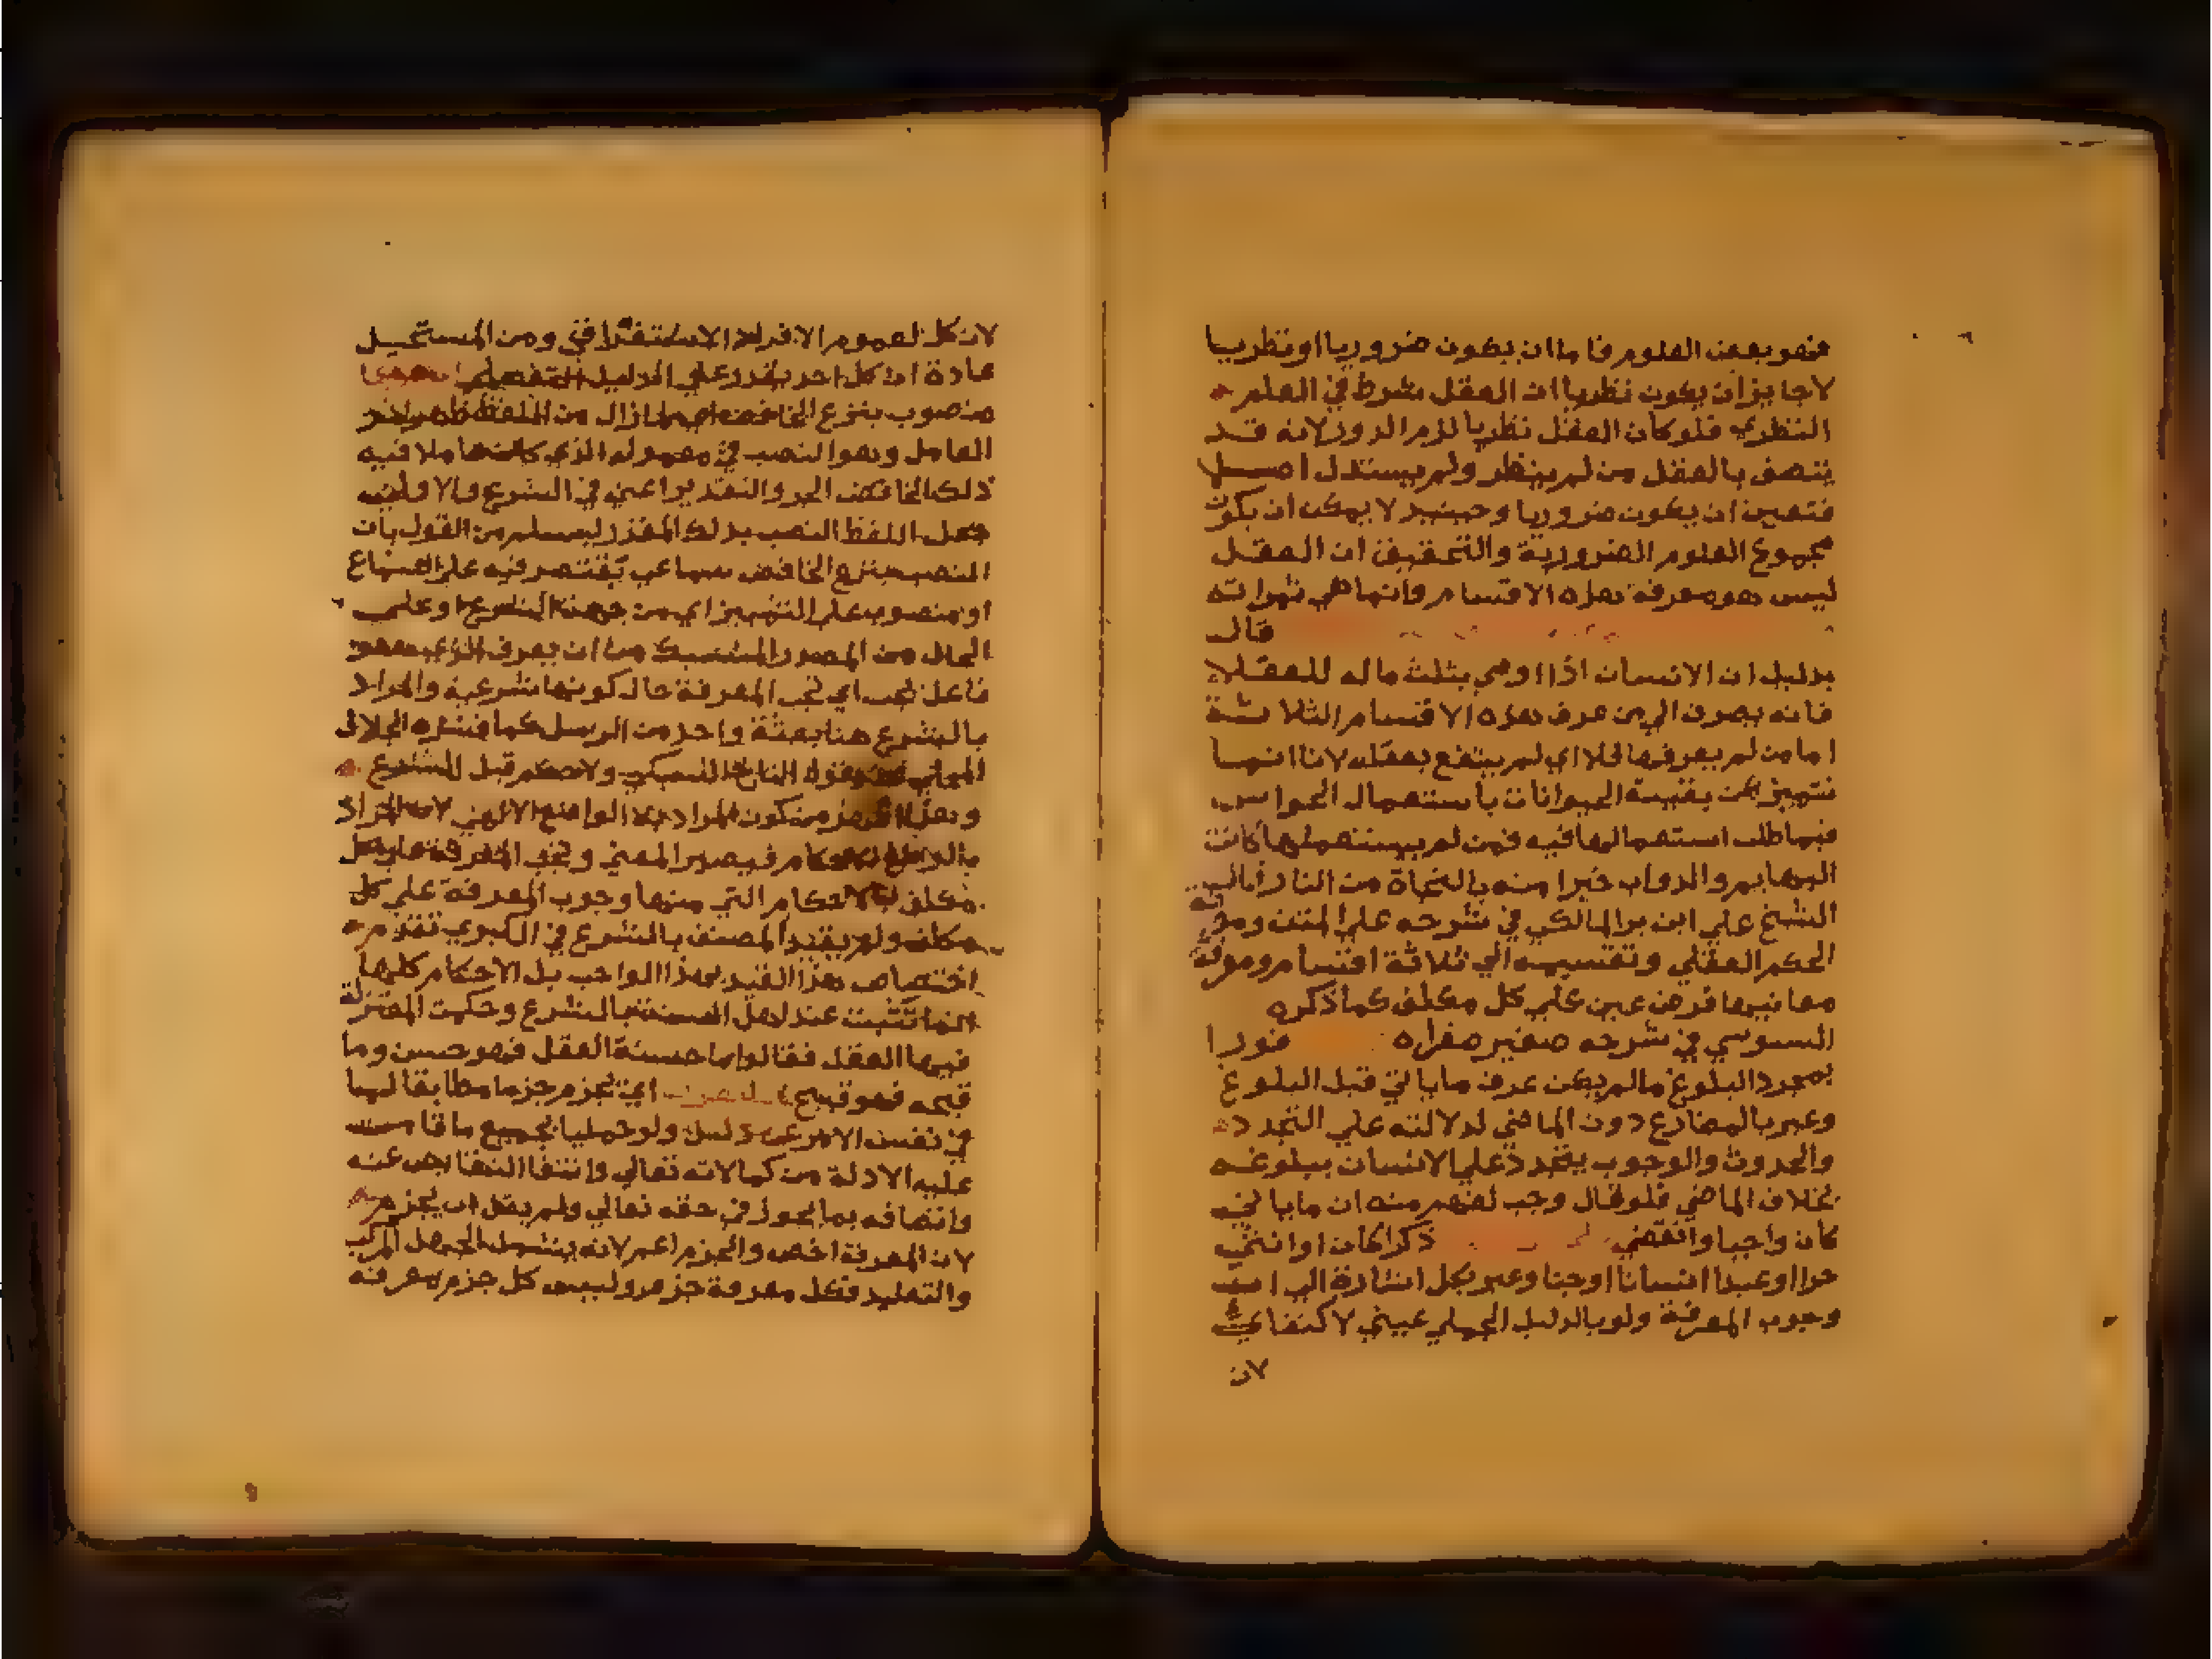 فهو بعض العلوم فاما ان يكون ضروريا او نظريا
لا جايز ان يكون نظريا لان العقل شرط في العلم
النظري فلو كان العقل نظريا لزم الدور لانه قد
يتصف بالعقل من لم ينظر ولم يستدل اصلا
فتعين ان يكون ضروريا وحينيذ لا يمكن ان يكون
مجموع العلوم الضرورية والتحقيق ان العقل
ليس هو معرفة هذه الاقسام وانما هي ثمراته
قال
بدليل ان الانسان اذا اوصي بثلث ماله للعقلا
فانه يصرف الي من عرف هذه الاقسام الثلاثة
اما من لم يعرفها فلا اي لم ينتفع بعقله لاننا انما
نتميز عن بقية الحيوانات باستعمال الحواس
فيما طلب استعمالها فيه فمن لم يستعملها كانت
البهايم والدواب خيرا منه بالنجاة من النار
الشيخ علي ابن بر المالكي في شرحه علي المتن ومعرفة
الحكم العقلي وتقسيمه الي ثلاثة اقسام ومعرفة
معانيها فرض عين علي كل مكلف كما ذكره
السنوسي في شرحه صغير صغراه فورا
بمجرد البلوغ ما لم يكن عرف ما ياتي قبل البلوغ
وعبر بالمضارع دون الماضي لدلالته علي التجدد
والحدوث والوجوب يتجدد علي الانسان ببلوغه
بخلاف الماضي فلو قال وجب لفهم منه ان ما ياتي
كان واجبا وانقضي ذكرا كان او انثي
حرا او عبدا انسانا او جنا وعبر بكل اشارة الي ان
وجوب المعرفة ولو بالدليل الجملي عيني لا كفاي
لان
لان كل لعموم الافراد الاستغراقي ومن المستحيل
عادة ان كل احد يقدر علي الدليل التفصيلي
منصوب بنزع الخافض اي لما زال من اللفظ ظهر اثر
العامل وهو النصب في معموله الذي كان عاملا فيه
ذلك الخافض الجر والتقدير اعني في الشرع والاولي
جعل اللفظ النصب بذلك المقدر ليسلم من القول بان
النصب بنزع الخافض سماعي يقتصر فيه علي السماع
او منصوب علي التمييز اي من جهة الشرع او علي
الحال من المصدر المنسبك من ان يعرف الذي هو
فاعل يجب اي تجب المعرفة حال كونها شرعية والمراد
بالشرع هنا بعثة واحد من الرسل كما فسره الجلال
المحلي عند قول التاج السبكي ولا حكم قبل الشرع
وهذا اظهر من كون المراد به الوضع الالهي لان المراد
بالوضع الاحكام فيصير المعني وتجب المعرفة علي كل
مكلف بالاحكام التي منها وجوب المعرفة علي كل
مكلف ولم يقيد المصنف بالشرع في الكبري لعدم
اختصاص هذا القيد بهذا الواجب بل الاحكام كلها
انما تثبت عند اهل السنة بالشرع وحكمت المعتزلة
فيها العقل فقالوا ما حسنه العقل فهو حسن وما
قبحه فهو قبيح اي يجزم جزما مطابقا لما
في نفس الامر عن دليل ولو جمليا بجميع ما قامت
عليه الادلة من كمالاته تعالي وانتفا النقايص عنه
واتصافه بما يجوز في حقه تعالي ولم يقل ان يجزم
لان المعرفة اخص والجزم اعم لانه يشمل الجهل المركب
والتقليد فكل معرفة جزم وليس كل جزم معرفة